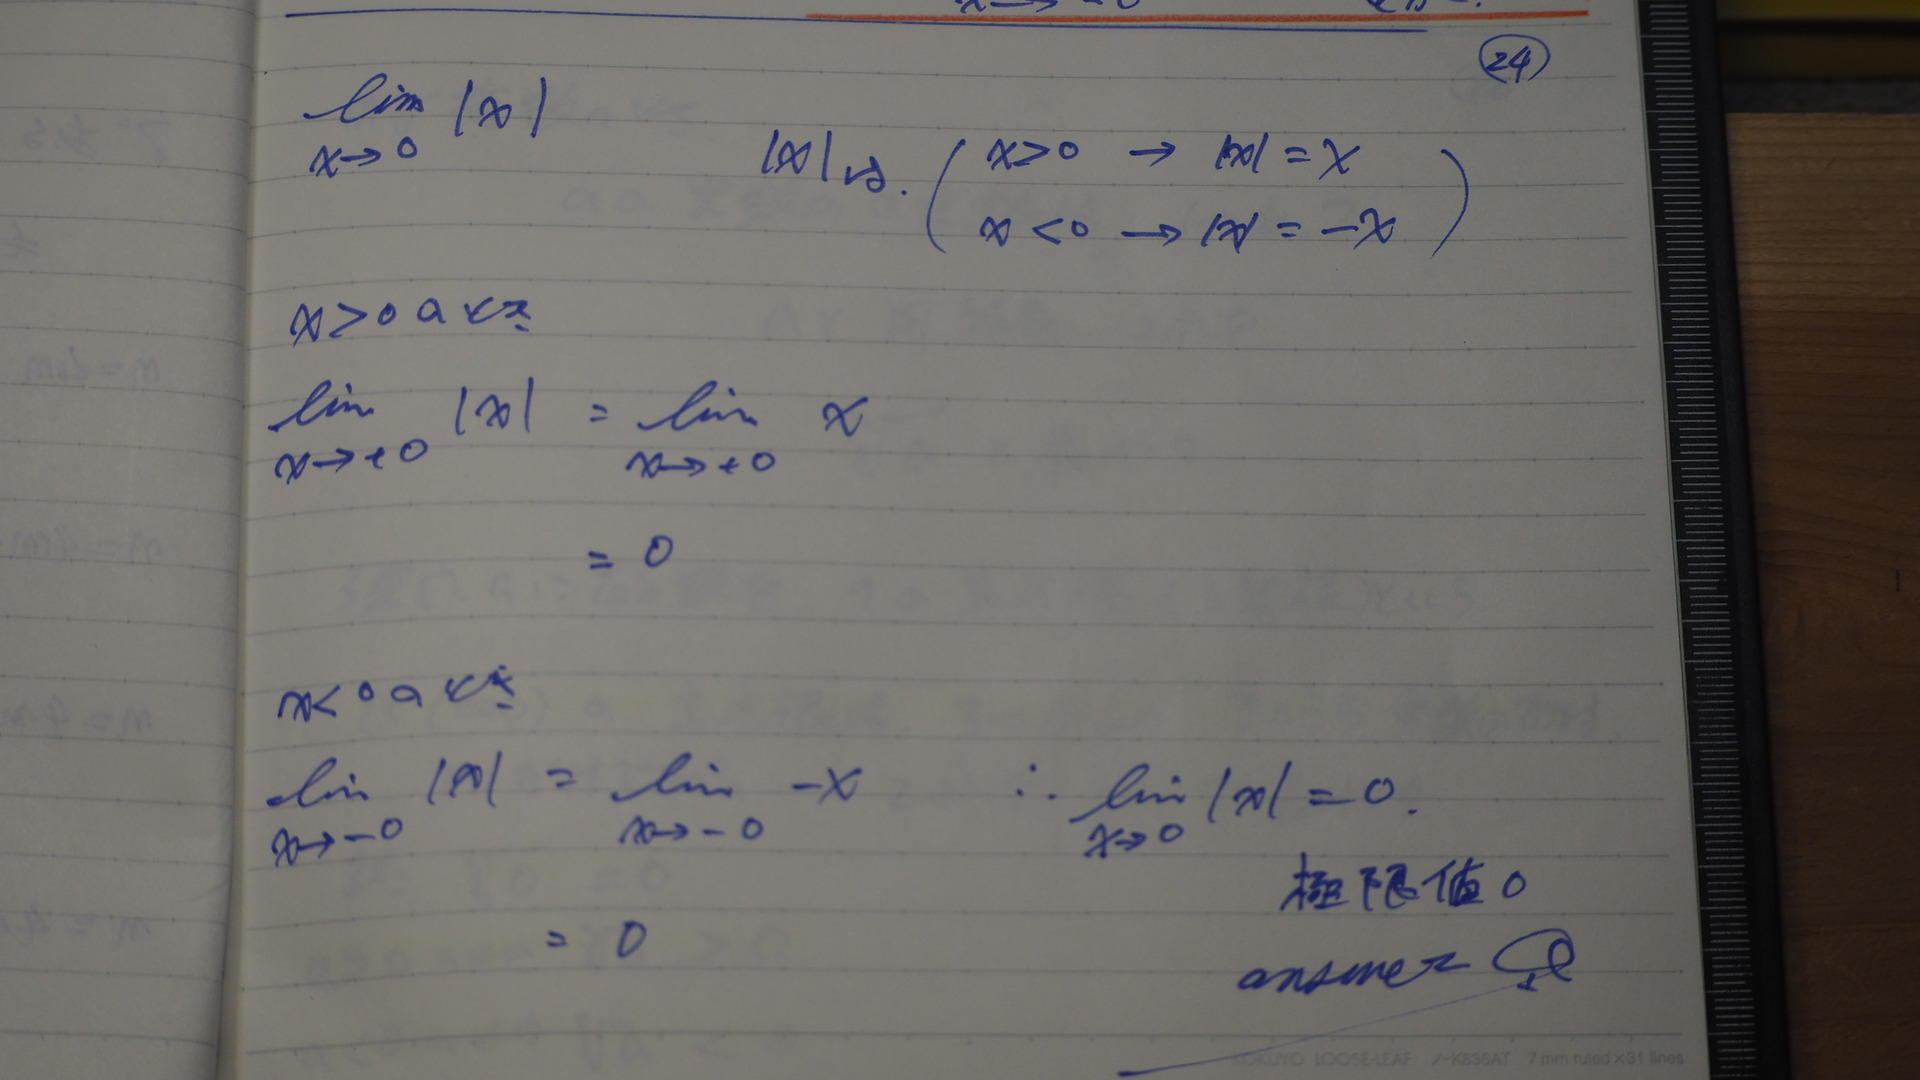 24
lim |x|
x→0
|x|は. ( x>0 → |x| = x
x<0 → |x| = -x )
x>0のとき
lim |x| = lim x
x→+0 x→+0
= 0
x<0のとき
lim |x| = lim -x ∴ lim |x| = 0.
x→-0 x→-0 x→0
極限値0
= 0
answer
KOKUYO LOOSE-LEAF ノ-K836AT 7 mm ruled×31 lines